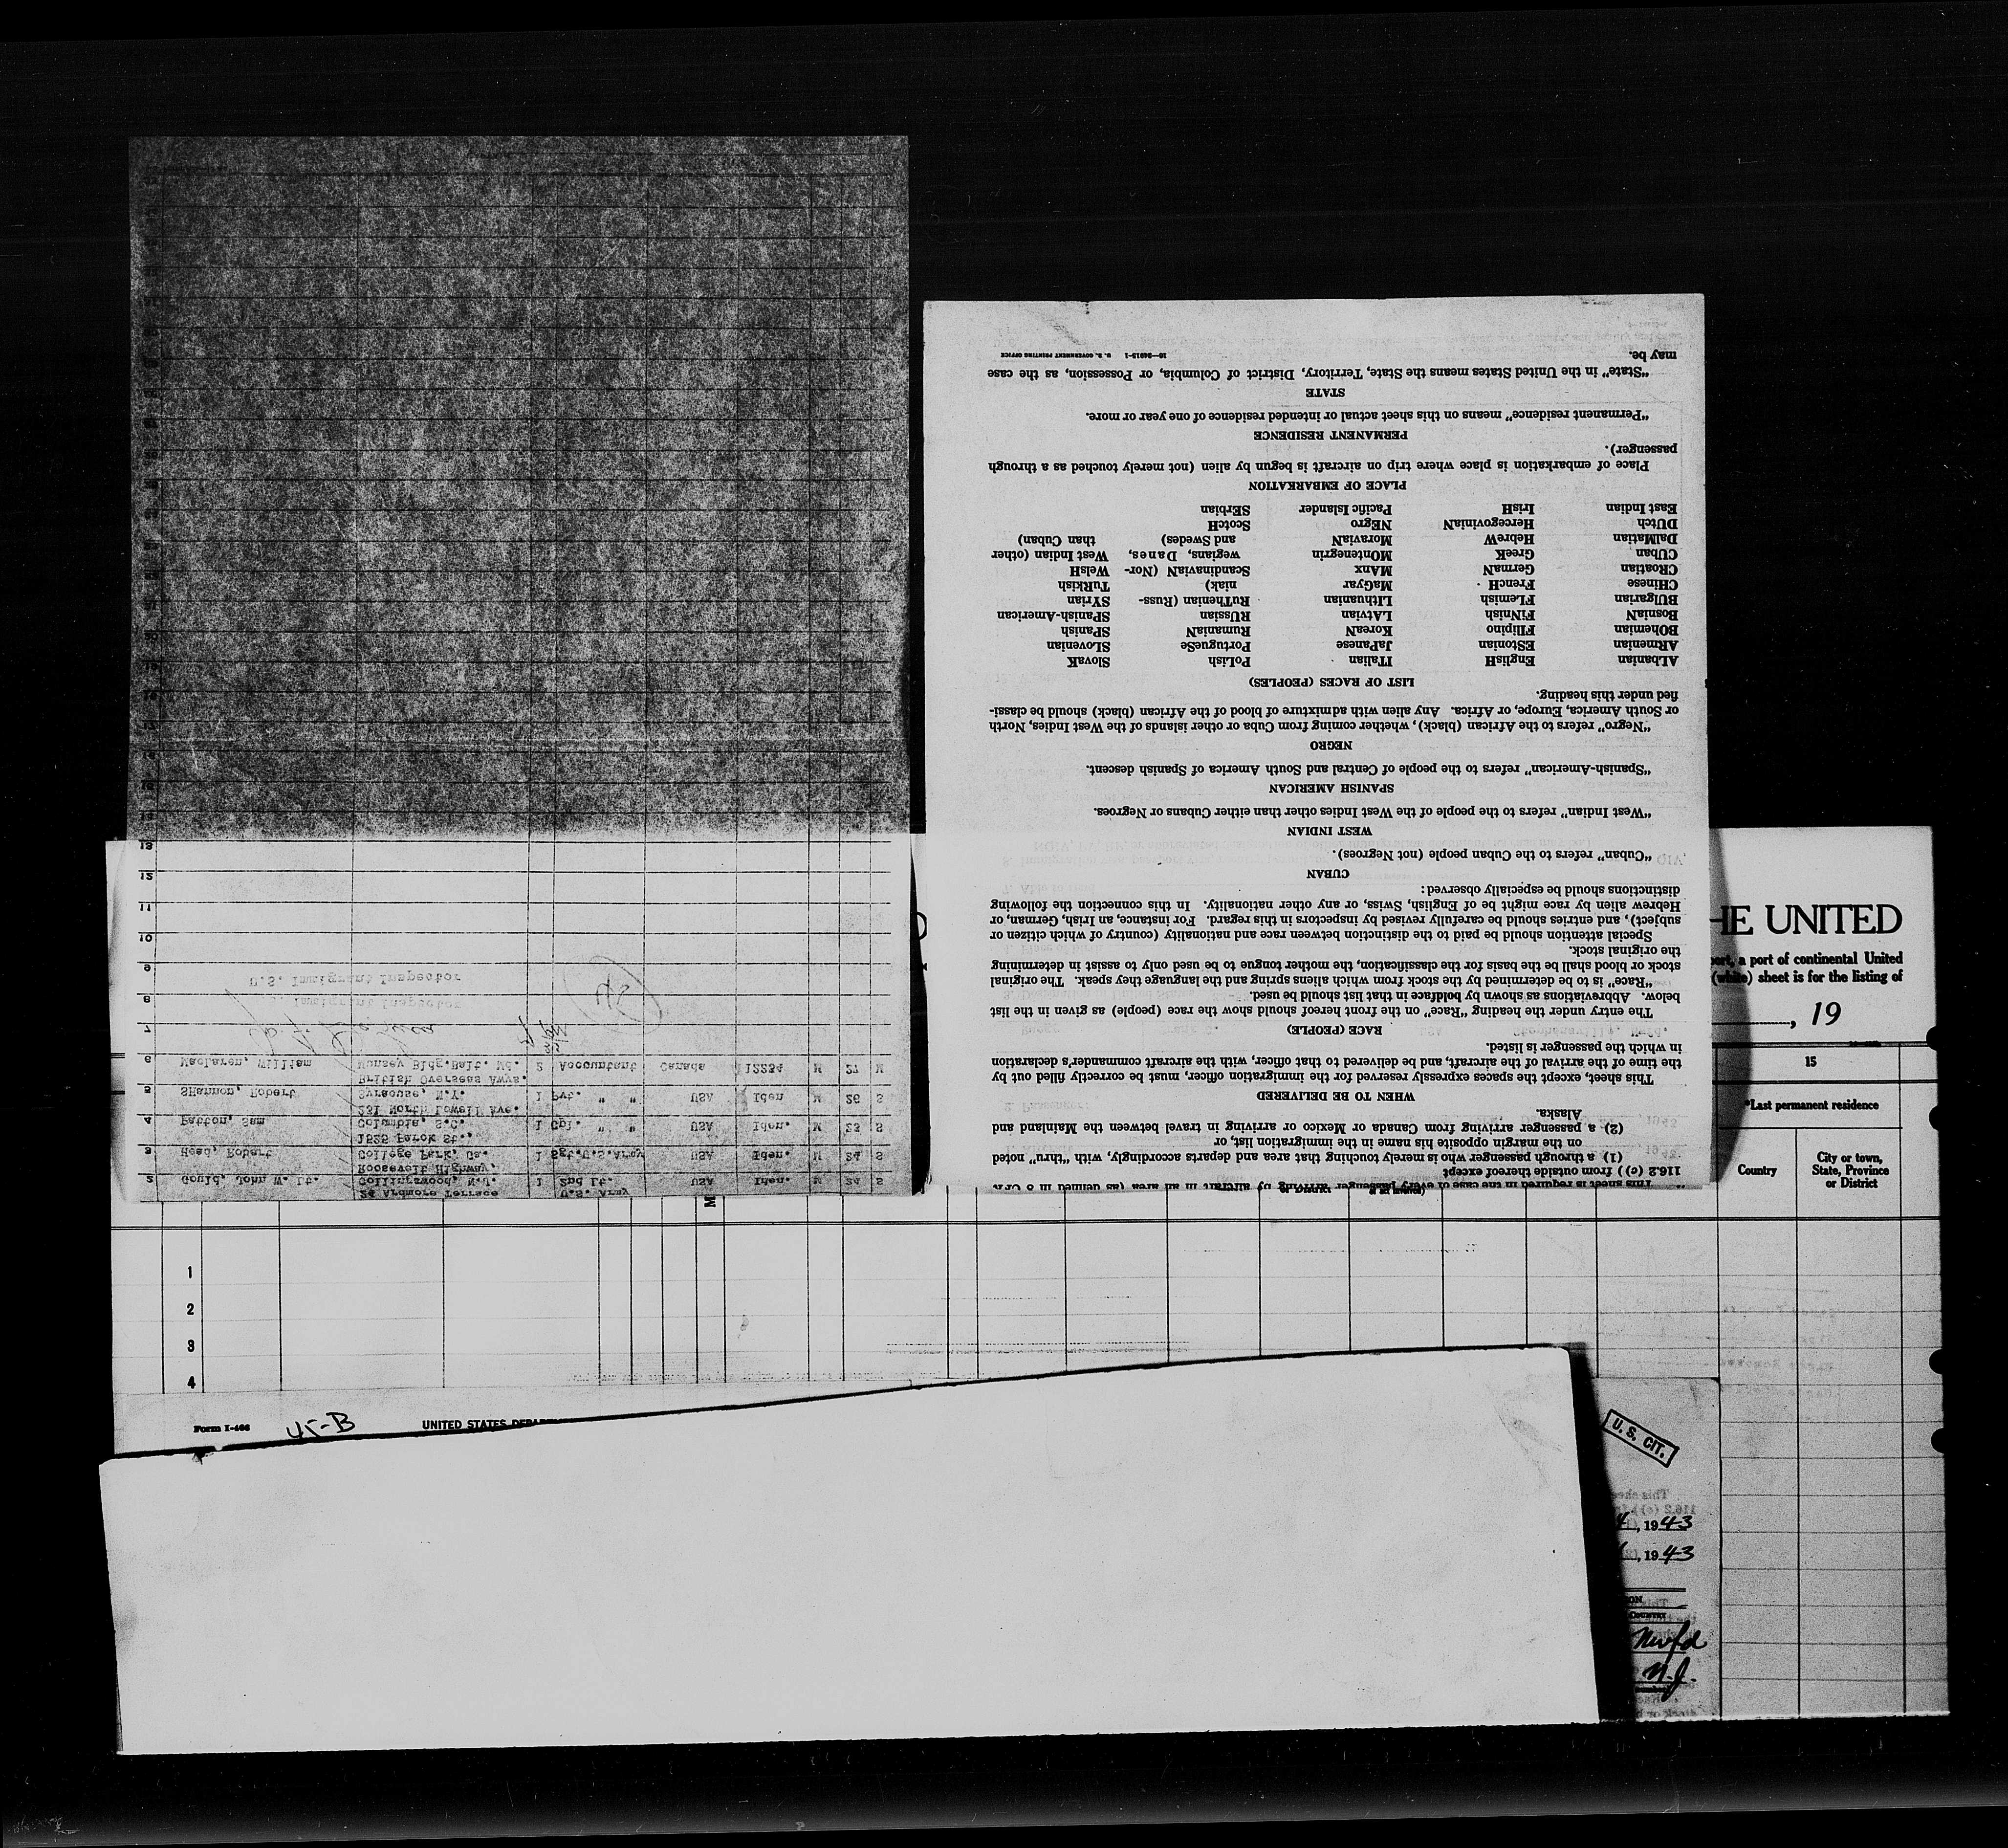 13
12
11
10
9
8
7
U.S. Immigrant Inspector
Immigrant Inspector
6 MacLaren, William Munsey Bldg.Balt. Md. 2 Accountant Canada 12234 M 27 M
British Overseas Awys.
5 SHannon, Robert Syracuse, N.Y. 1 Pvt. " " USA Iden M 26 S
231 North Lowell Ave.
4 Patton, Sam Columbia, S.C. 1 Cpl. " " USA Iden. M 23 S
1525
3 Head, Robert College Park, Ga. 1 Sgt.U.S.Army USA Iden. M 24 S
Roosevelt Highway,
2 Gould, John W. Lt. Collingswood, N.J. 1 2nd Lt. USA Iden. M 24 S
24 Ardmore Terrace U.S. Army
This sheet is required in the case of every passenger arriving by aircraft in an area (as defined in 8 CFR
116.2 (c)) from outside thereof except
(1) a through passenger who is merely touching that area and departs accordingly, with "thru" noted
on the margin opposite his name in the immigration list, or
(2) a passenger arriving from Canada or Mexico or arriving in travel between the Mainland and
Alaska.
WHEN TO BE DELIVERED
This sheet, except the spaces expressly reserved for the immigration officer, must be correctly filled out by
the time of the arrival of the aircraft, and be delivered to that officer, with the aircraft commander's declaration
in which the passenger is listed.
RACE (PEOPLE)
The entry under the heading "Race" on the front hereof should show the race (people) as given in the list
below. Abbreviations as shown by boldface in that list should be used.
"Race" is to be determined by the stock from which aliens spring and the language they speak. The original
stock or blood shall be the basis for the classification, the mother tongue to be used only to assist in determining
the original stock.
Special attention should be paid to the distinction between race and nationality (country of which citizen or
subject), and entries should be carefully revised by inspectors in this regard. For instance, an Irish, German, or
Hebrew alien by race might be of English, Swiss, or any other nationality. In this connection the following
distinctions should be especially observed:
CUBAN
"Cuban" refers to the Cuban people (not Negroes).
WEST INDIAN
"West Indian" refers to the people of the West Indies other than either Cubans or Negroes.
SPANISH AMERICAN
"Spanish-American" refers to the people of Central and South America of Spanish descent.
NEGRO
"Negro" refers to the African (black), whether coming from Cuba or other islands of the West Indies, North
or South America, Europe, or Africa. Any alien with admixture of blood of the African (black) should be classi-
fied under this heading.
LIST OF RACES (PEOPLES)
ALbanian EnglisH ITalian PoLish SlovaK
ARmenian EStonian JaPanese PortugueSe SLovenian
BOhemian FIlipino KoreaN RumaniaN SPanish
BosniaN FiNnish LAtvian RUssian SPanish-American
BUlgarian FLemish LIthuanian RuThenian (Russ- SYrian
CHinese FrencH MaGyar niak) TuRkish
CRoatian GermaN MAnx ScandinaviaN (Nor- WelsH
CUban GreeK MOntenegrin wegians, Danes, West Indian (other
DalMatian HebreW MoraviaN and Swedes) than Cuban)
DUtch HercegoviniaN NEgro ScotcH
East Indian IrisH Pacific Islander SErbian
PLACE OF EMBARKATION
Place of embarkation is place where trip on aircraft is begun by alien (not merely touched as a through
passenger).
PERMANENT RESIDENCE
"Permanent residence" means on this sheet actual or intended residence of one year or more.
STATE
"State" in the United States means the State, Territory, District of Columbia, or Possession, as the case
may be.
16—34915-1 U. S. GOVERNMENT PRINTING OFFICE
HE UNITED
port, a port of continental United
(white) sheet is for the listing of
, 19
15
*Last permanent residence
Country
City or town,
State, Province
or District
M
1
2
3
4
Form I-466 45-B UNITED STATES DEPART
U. S. CIT.
4, 1943
, 1943
ON
COUNTRY
Nwfd
N.J.